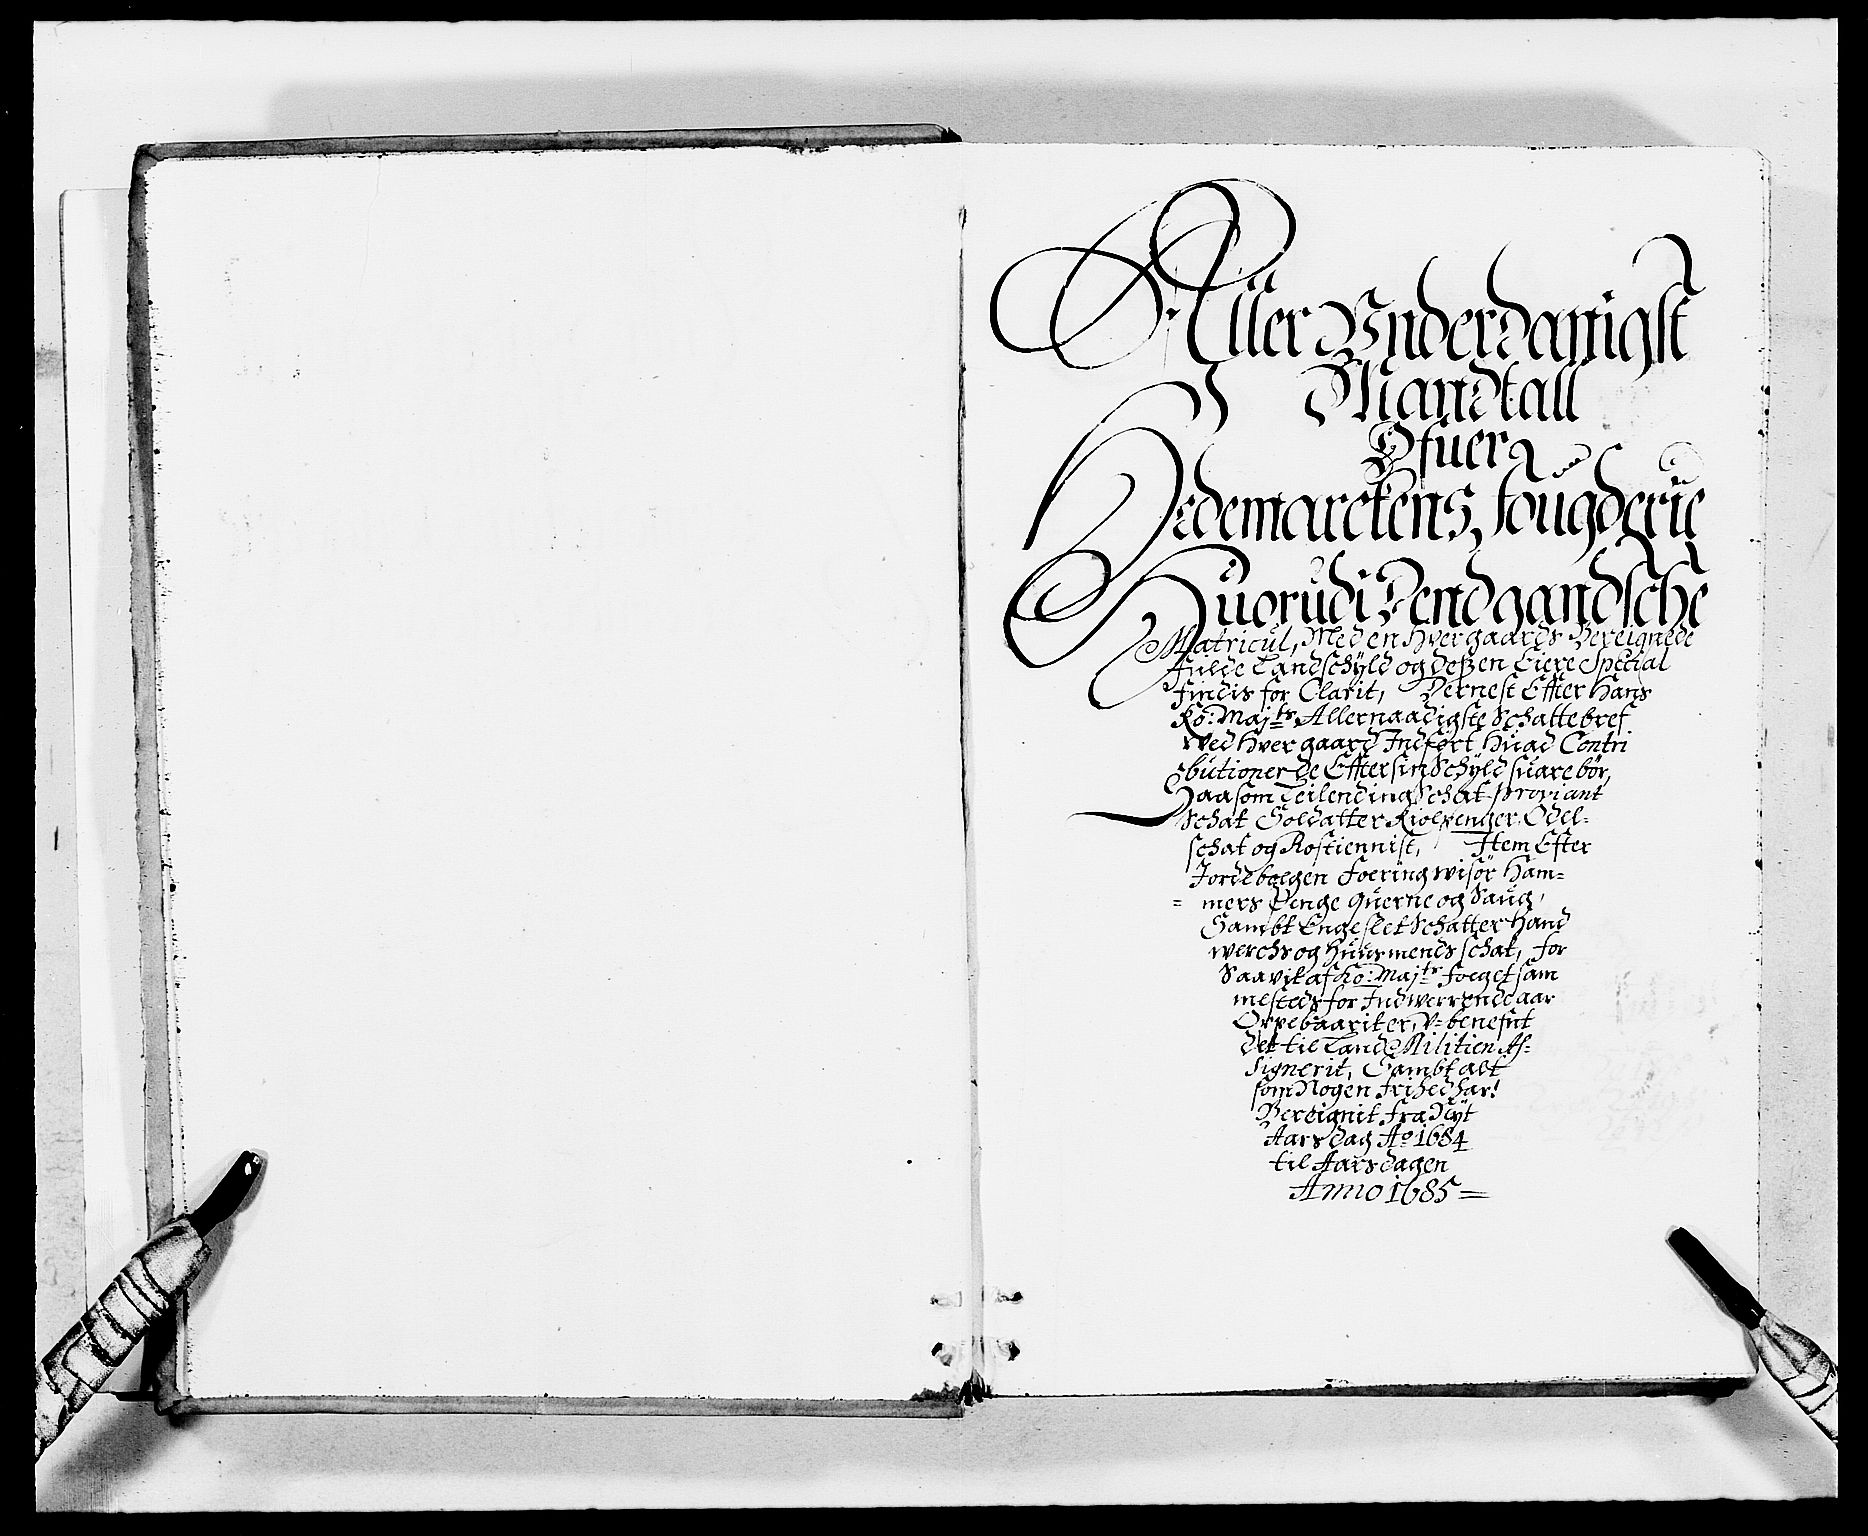 Aller Underdanigst
Mandtall
Ofuer
Hedemarckens, fougderie
Huorudi Dend gandsche
Matricul, Med en hver gaards Bereignede
fulde Landschÿld og deßen Eiere Special
findis for Clarit, Dernest Effter Hans
Ko: Maj:ts Allernaadigste Schattebref
Ved hver gaard Indført huad Contri
butioner de Effter sin Schÿld suare bør,
Saasom Leilending Schat proviant
Schat Soldatter Kiolpenger, Odel-
schat og Rostiennist, Item Efter
Jordebogen foering wisør Ham-
= mers Penge Querne og Saug,
Sambt Engeslet Schatter Hand
werchs og Huusmends schat, for
Saavit af Ko: Maj:ts foeget sam
mesteds for Indwerrende aar
Oppebaariter, V-benefnt
det til Land Militien As-
signerit, Sambt alt
som Nogen frihed har!
Bereignit fra Nÿt
Aars dag Ao 1684
til Aarsdagen
Anno 1685 =